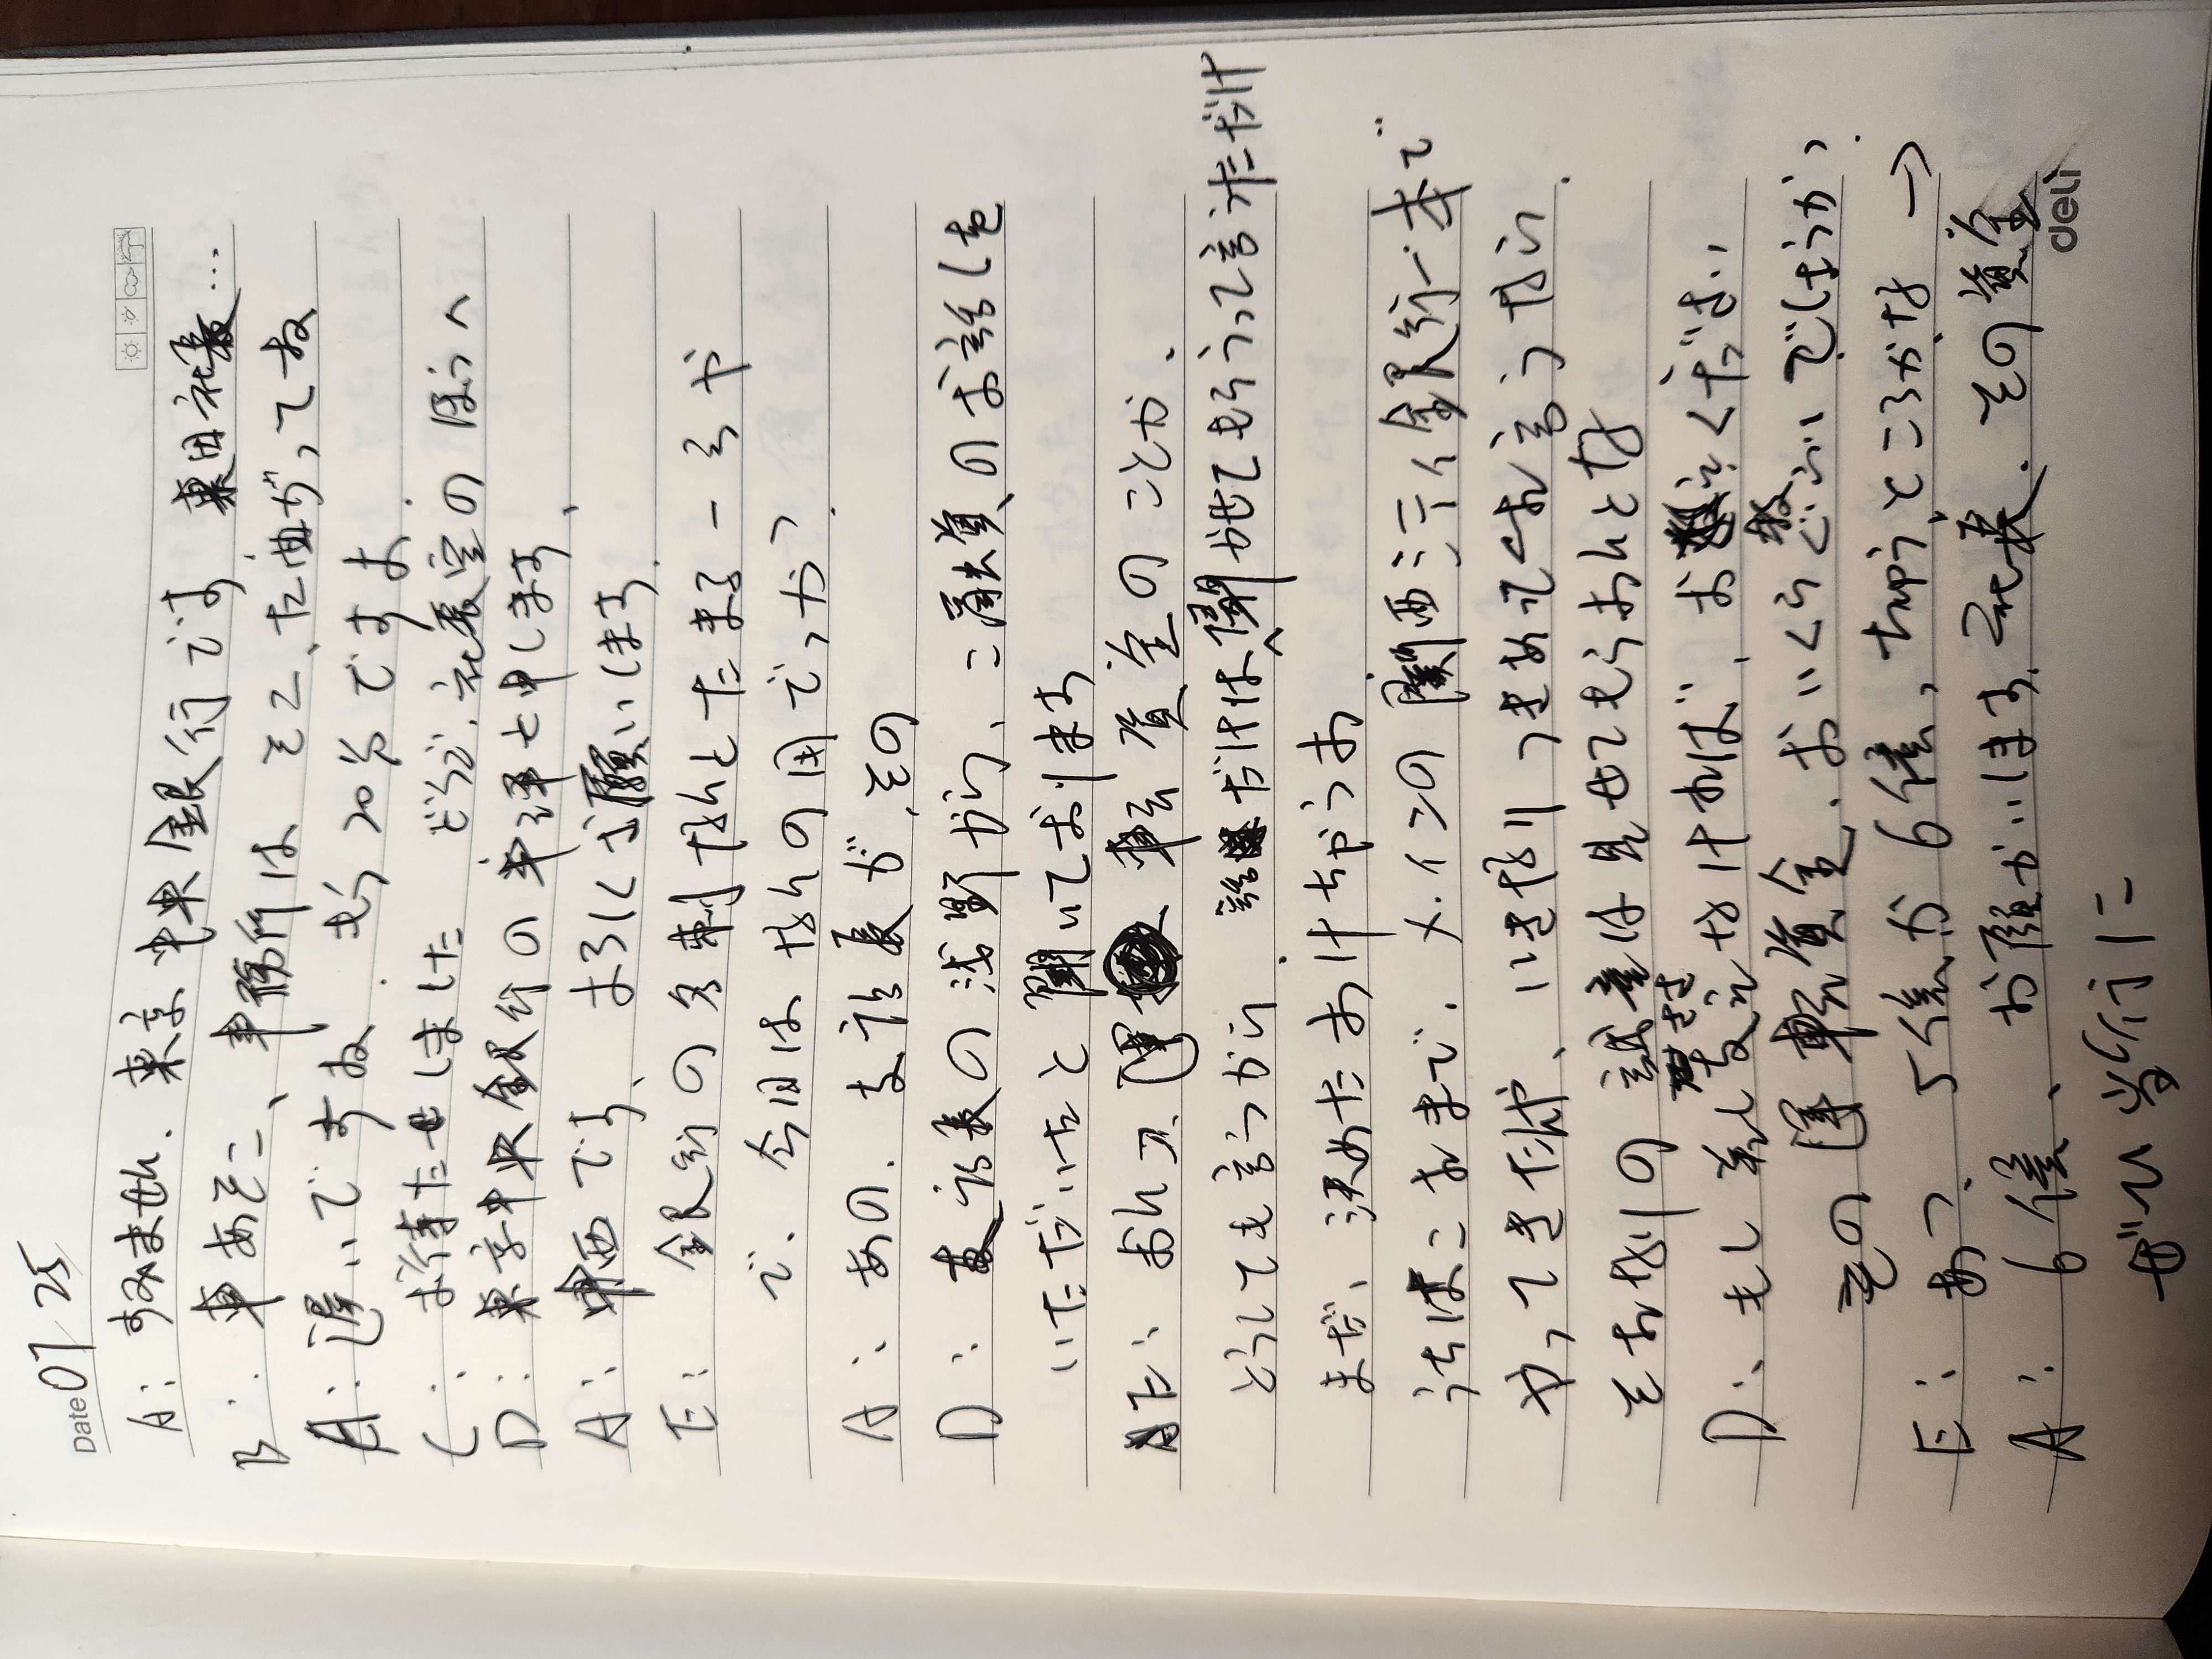 Date 07/25
A: すみません. 東京中央銀行です 東田社長…
B: 車あそこ、事務所はそこ、左曲がってね
A: 遅いですね もう20分ですよ.
C: お待たせしました どうぞ.社長室のほうへ
D: 東京中央銀行の半沢と申します、
A: 中西です、よろしくお願いします.
E: 銀行の名刺なんとたまるーろや
で、今日は なんの用でっか?
A: あの. 支社長が、その
D: 支社長の浅野から、ご融資のお話しを
いただいたと聞いております
E: おんコ、運転資金のことか.
どうしても言うから. 話だけは聞かせてもろうって言ただけ
まだ、決めたわけちやうわ
うちはこれまで. メインの 関西シティ銀行一本で
やってきたば、いきなりつきあってくれ言うない
それなりの誠意は見せてもらわんとな
D: もし差し支えなければ、お教えください
その運転資金、おいくらぐらいでしょうか?
E: あっ、5億か6億、ちゅうところかなー
A: 6億、お願いします. 社長. その資金
ぜひ当行に
deli